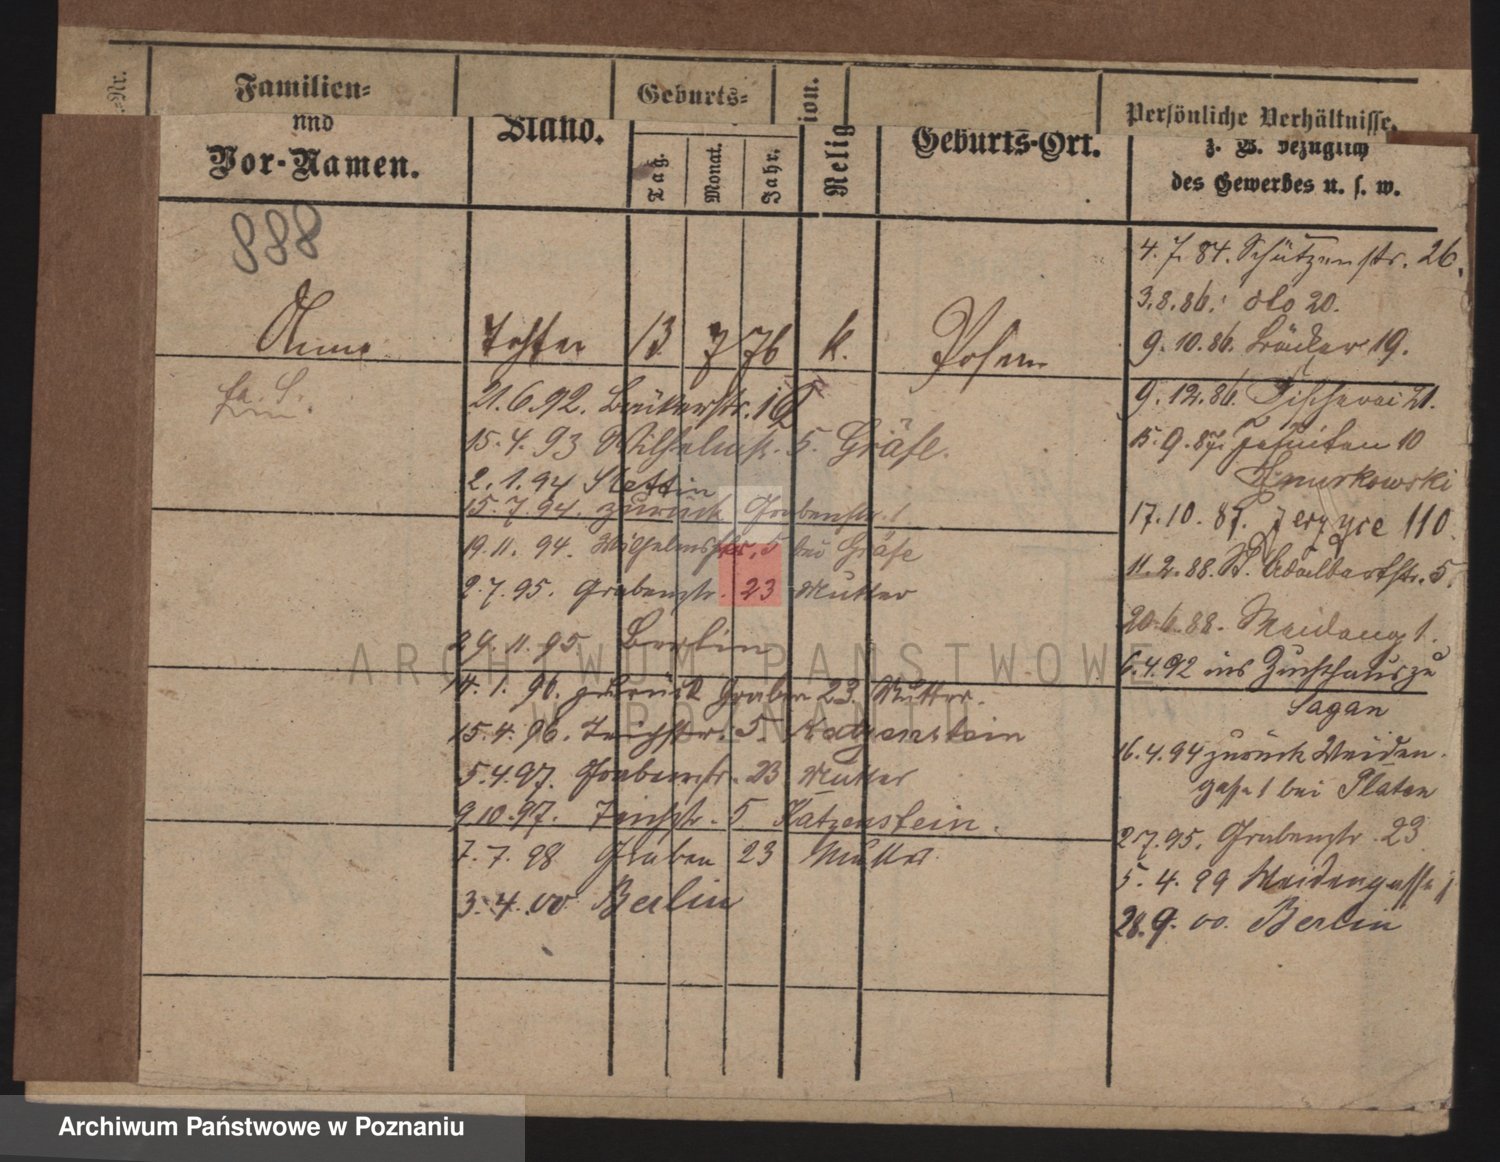 Familien-
und
Vor-Namen.
Stand.
Geburts-
Tag.
Monat.
Jahr.
ion.
Relig
Geburts-Ort.
Persönliche Verhältnisse,
z. B. bezüglich
des Gewerbes u. s. w.
888
Anna Tochter 13 7 76 k. Posen
21.6.92. Bäckerstr.
15.4.93 Wilhelmstr. 5. Gräfe.
2.1.94 Stettin
15.7.94. zurück Grabenstr. 1
19.11.94. Wilhelmstr. 5 bei Gräfe
2.7.95. Grabenstr. 23 Mutter
29.11.95. Berlin
14.1.96. zurück Graben 23 Mutter.
15.4.96. Teichstr. 5. Katzenstein
5.4.97. Grabenstr. 23 Mutter
9.10.97. Teichstr. 5 Katzenstein.
7.7.98 Graben 23 Mutter
3.4.00 Berlin
4.7.84. Schützenstr. 26.
3.8.86. dto 20.
9.10.86. Bäcker 19.
9.12.86. Fischerei 21.
15.9.87. Jesuiten 10
Zmurkowski
17.10.87. Jerzyce 110.
11.2.88. St. Adalbertstr. 5.
20.6.88. 1.
6.4.92 ins Zuchthaus zu
Sagan
16.4.94 zurück Weiden-
gasse 1 bei Platen
2.7.95. Grabenstr. 23
5.4.99 Weidengasse
28.9.00. Berlin
ARCHIWUM PAŃSTWOWE
W POZNANIU
Archiwum Państwowe w Poznaniu